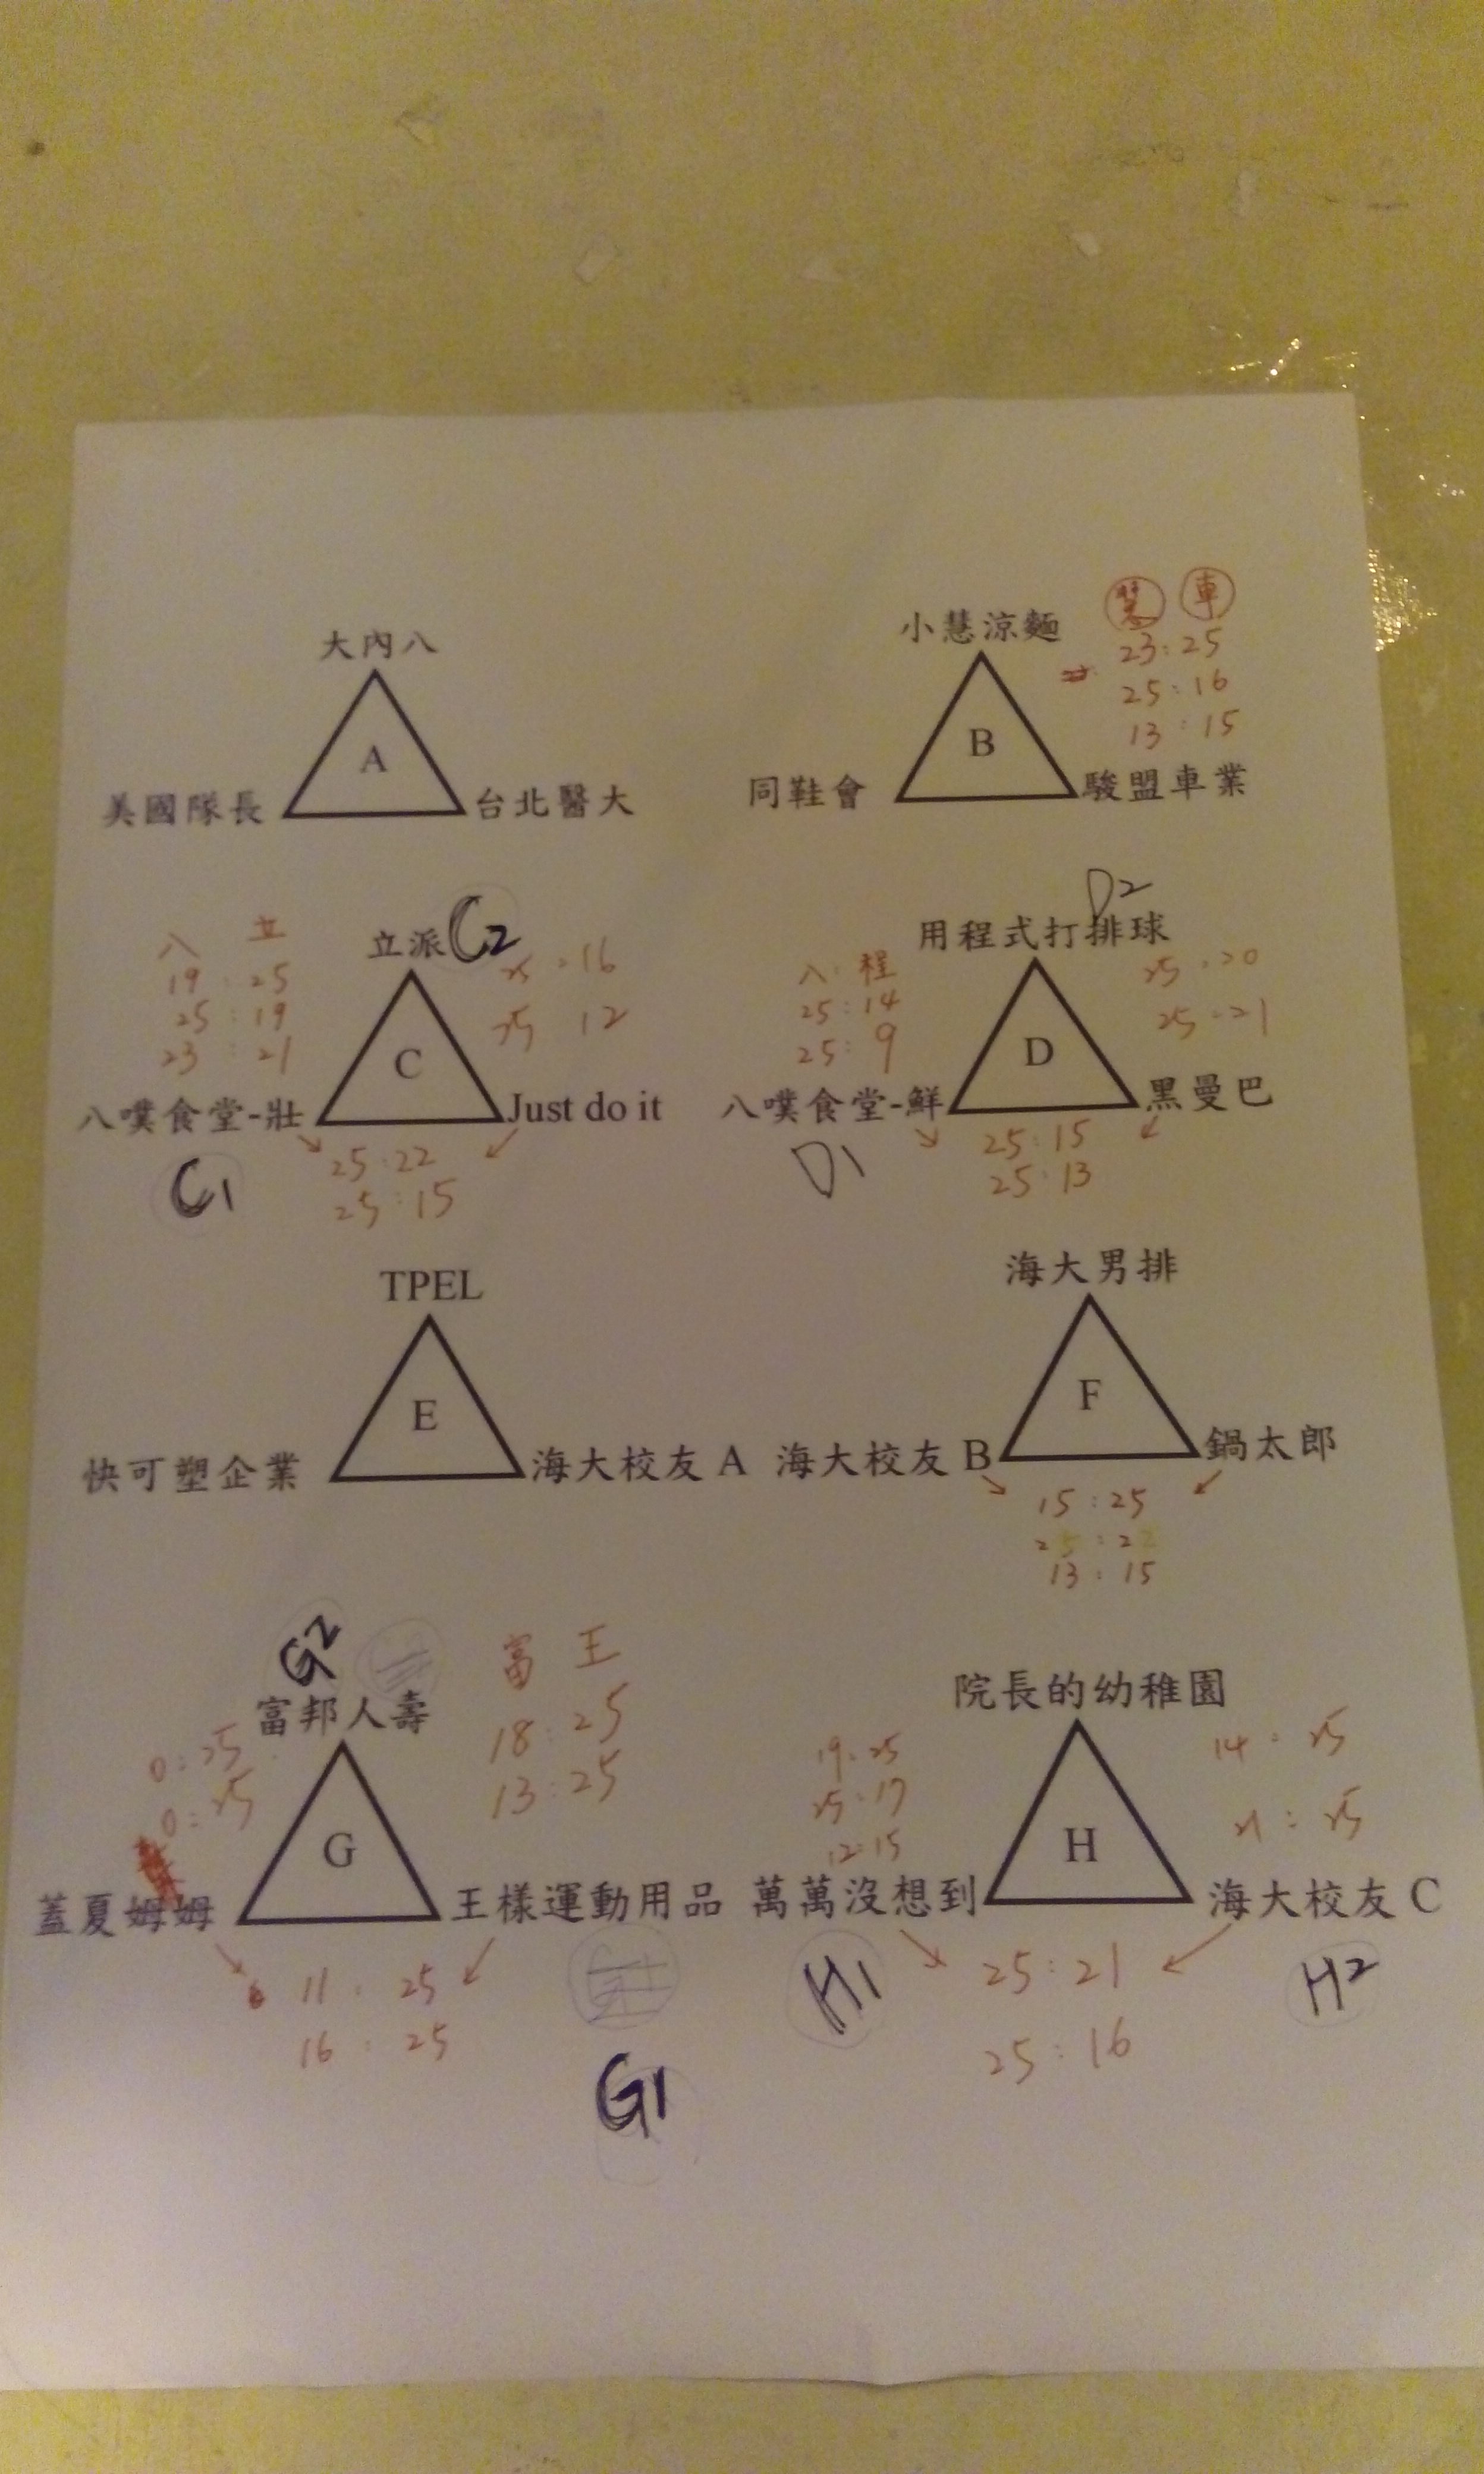 大內八
A
美國隊長
台北醫大
小慧涼麵
慧 車
23:25
25:16
13:15
B
同鞋會
駿盟車業
立派 C2
八 立
19:25
25:19
23:21
25:16
25 12
C
八噗食堂-壯
Just do it
C1
25:22
25:15
D2
用程式打排球
八:程
25:14
25:9
25:20
25:21
D
八噗食堂-鮮
黑曼巴
D1
25:15
25:13
TPEL
E
快可塑企業
海大校友 A
海大男排
F
海大校友 B
鍋太郎
15:25
25:22
13:15
G2
富邦人壽
富 王
18:25
13:25
0:25
0:25
G
蓋夏姆姆
王樣運動用品
11:25
16:25
G1
院長的幼稚園
19:25
25:17
12:15
14:25
21:25
H
萬萬沒想到
海大校友 C
H1
H2
25:21
25:16